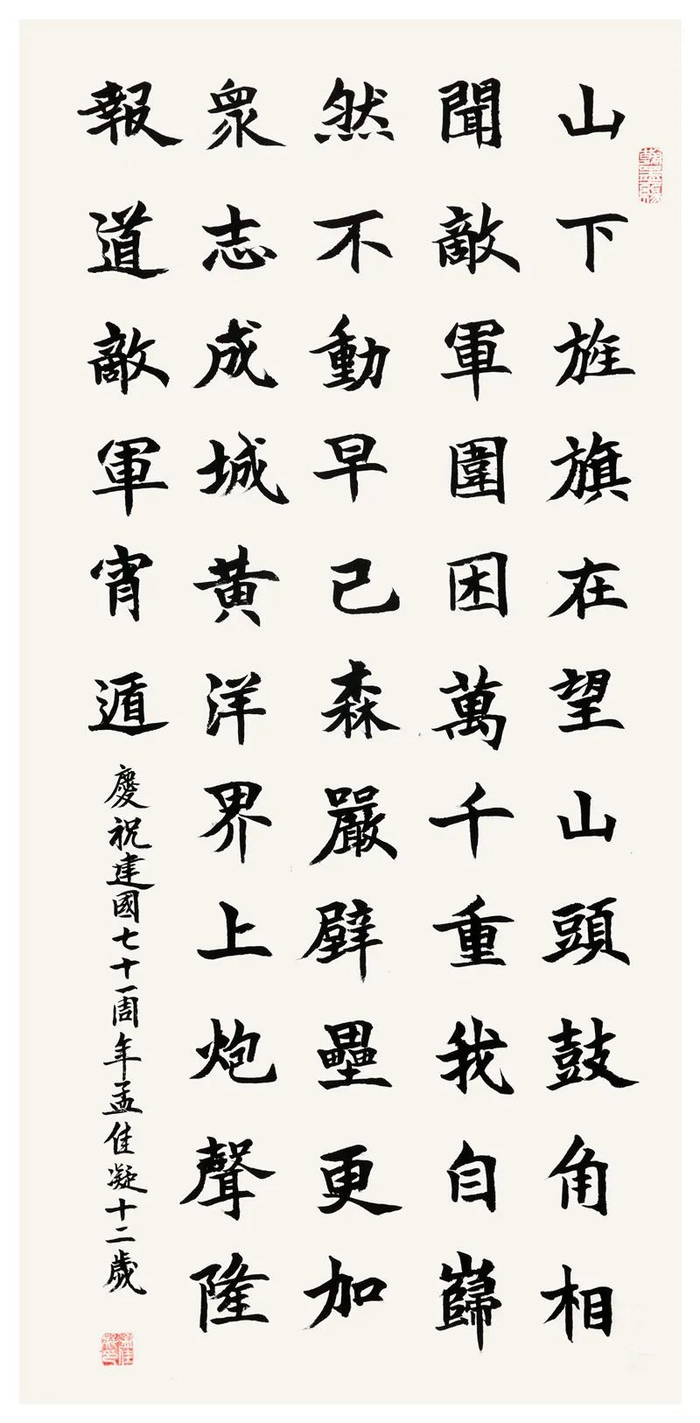 山下旌旗在望山頭鼓角相
聞敵軍圍困萬千重我自巋
然不動早已森嚴壁壘更加
衆志成城黃洋界上炮聲隆
報道敵軍宵遁
慶祝建國七十一周年孟佳凝十二歲